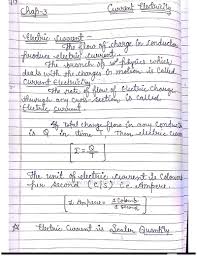 Chap-3 Current Electricity
Electric Current -
The flow of charge in conductor
produce electric current.
The branch of physics which
deals with the charges in motion is called
Current Electricity
The rate of flow of Electric Charge
through any cross-section is called
Electric current
If total charge flow in any conductor
is Q in time t. Then electric curr
I = Q/t
The unit of electric current is Coloumb
per second (C/S) i.e. Ampere.
1 Ampere = 1 Coloumb / 1 Second
Electric Current is Scalar Quantity